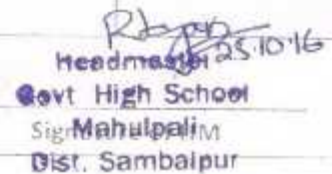 25.10.16
Headmaster
Govt High School
Mahulpali
Dist. Sambalpur